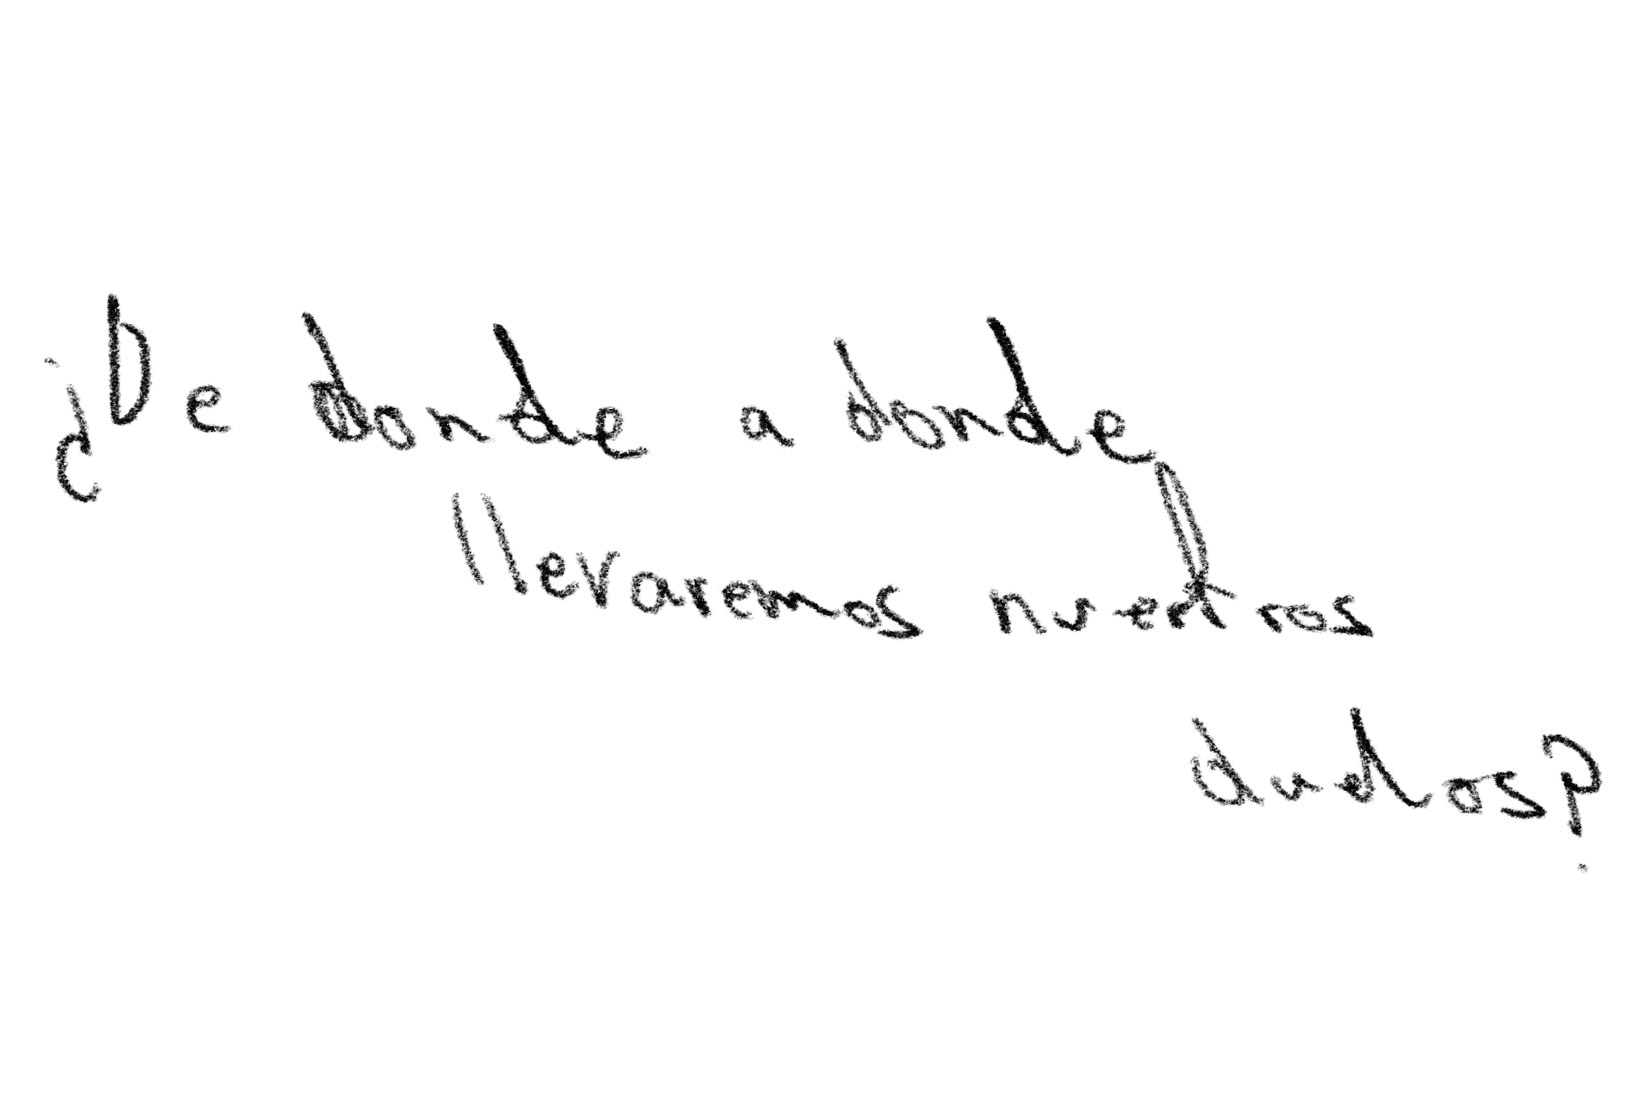 ¿De donde a donde
llevaremos nuestros
dudos?